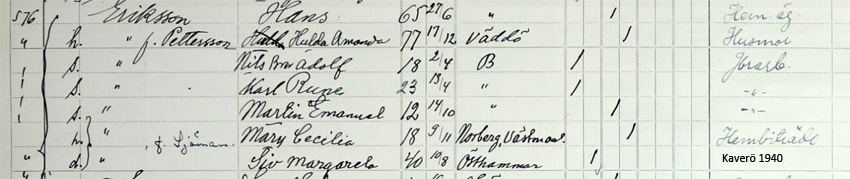 576 Eriksson Hans 65 27/6 " / Hem.äg.
" h. " f. Pettersson Hulda Hulda Amanda 77 17/12 Väddö / Husmor
s. " Nils Adolf 18 2/4 B / Jbrarb.
s. " Karl Rune 23 13/4 " / -"-
s. " Martin Emanuel 12 14/10 " / -"-
h. " f. Sjöman Mary Cecilia 18 5/11 Norberg, Västman. / Hembiträde
" d. " Siv Margareta 40 10/8 Östhammar / Kaverö 1940